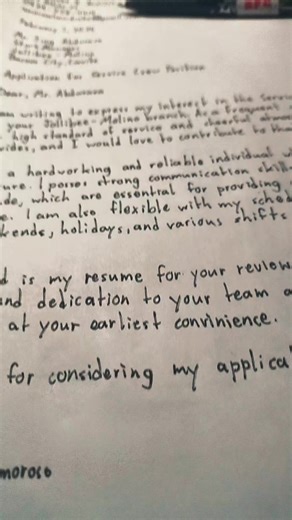 February
Mr.
Application for Service Crew Position
Dear, Mr. Abdurava
am writing to express my interest in the Servi
your Jollibee - Molino branch. As a frequent
high standard of service and cheerful atmos
vides, and I would love to contribute to tha
a hardworking and reliable individual w
ure. I posses strong communication skills
de, which are essential for providing
e. I am also flexible with my sched
kends, holidays, and various shifts
d is my resume for your review
and dedication to your team a
at your earliest convinience.
for considering my applica
moroso